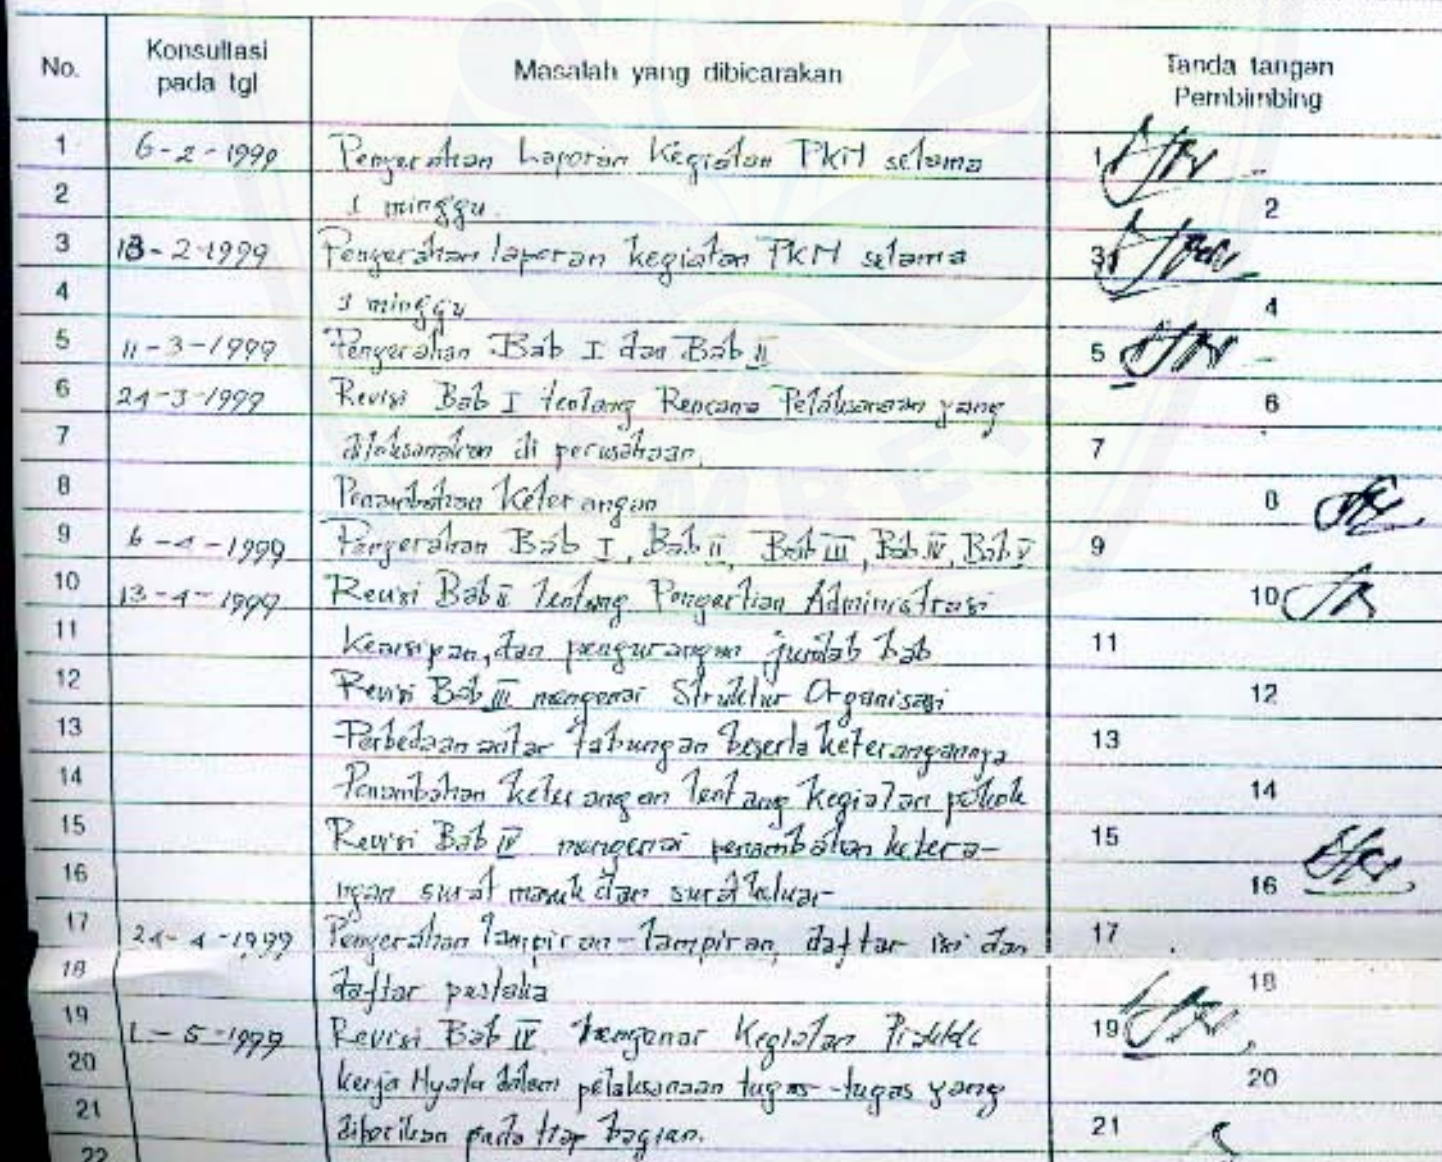 No. Konsultasi pada tgl Masalah yang dibicarakan Tanda tangan Pembimbing
1 6-2-1999 Penyerahan Laporan Kegiatan PKN selama 1
2 1 minggu. 2
3 13-2-1999 Penyerahan laporan kegiatan PKN selama 3
4 1 minggu 4
5 11-3-1999 Penyerahan Bab I dan Bab II 5
6 24-3-1999 Revisi Bab I tentang Rencana Pelaksanaan yang 6
7 dilaksanakan di perusahaan. 7
8 Penambahan Keterangan 8
9 6-4-1999 Penyerahan Bab I, Bab II, Bab III, Bab IV, Bab V 9
10 13-4-1999 Revisi Bab II tentang Pengertian Administrasi 10
11 Kearsipan, dan pengurangan jumlah bab 11
12 Revisi Bab III mengenai Struktur Organisasi 12
13 Perbedaan antar tabungan beserta keterangannya 13
14 Penambahan keterangan tentang kegiatan pokok 14
15 Revisi Bab IV mengenai penambahan ketera- 15
16 ngan surat masuk dan surat keluar 16
17 24-4-1999 Penyerahan lampiran-lampiran, daftar isi dan 17
18 daftar pustaka 18
19 1-5-1999 Revisi Bab IV mengenai Kegiatan Praktek 19
20 kerja Nyata dalam pelaksanaan tugas-tugas yang 20
21 diberikan pada tiap bagian. 21
22